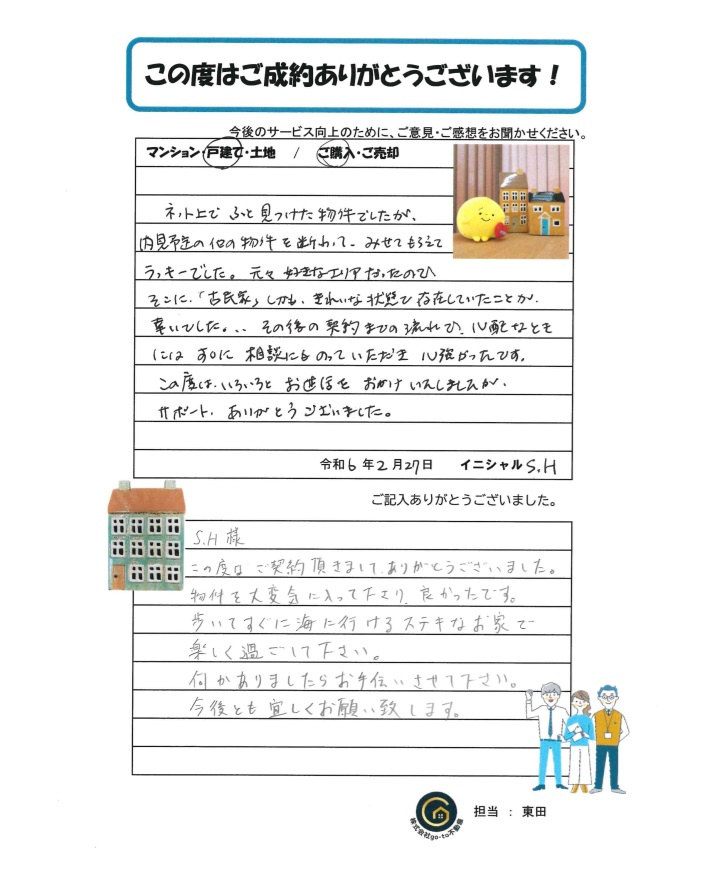 この度はご成約ありがとうございます！
今後のサービス向上のために、ご意見・ご感想をお聞かせください。
マンション・戸建て・土地　/　ご購入・ご売却
ネット上で ふと見つけた物件でしたが、
内見予定の他の物件を断わって、みせてもらえて
ラッキーでした。元々 好きなエリアだったので
そこに、「古民家」しかも、きれいな状態で存在していたことが、
幸いでした。、、その後の契約までの流れで、心配なとき
には すぐに 相談にものっていただき 心強かったです。
この度は、いろいろと お世話を おかけ いたしましたが、
サポート、ありがとうございました。
令和6年2月27日　イニシャル S.H
ご記入ありがとうございました。
S.H 様
この度は ご契約頂きまして、ありがとうございました。
物件を大変気に入って下さり、良かったです。
歩いてすぐに海に行けるステキなお家で
楽しく過ごして下さい。
何かありましたらお手伝いさせて下さい。
今後とも宜しくお願い致します。
担当 ： 東田
株式会社go-to不動産